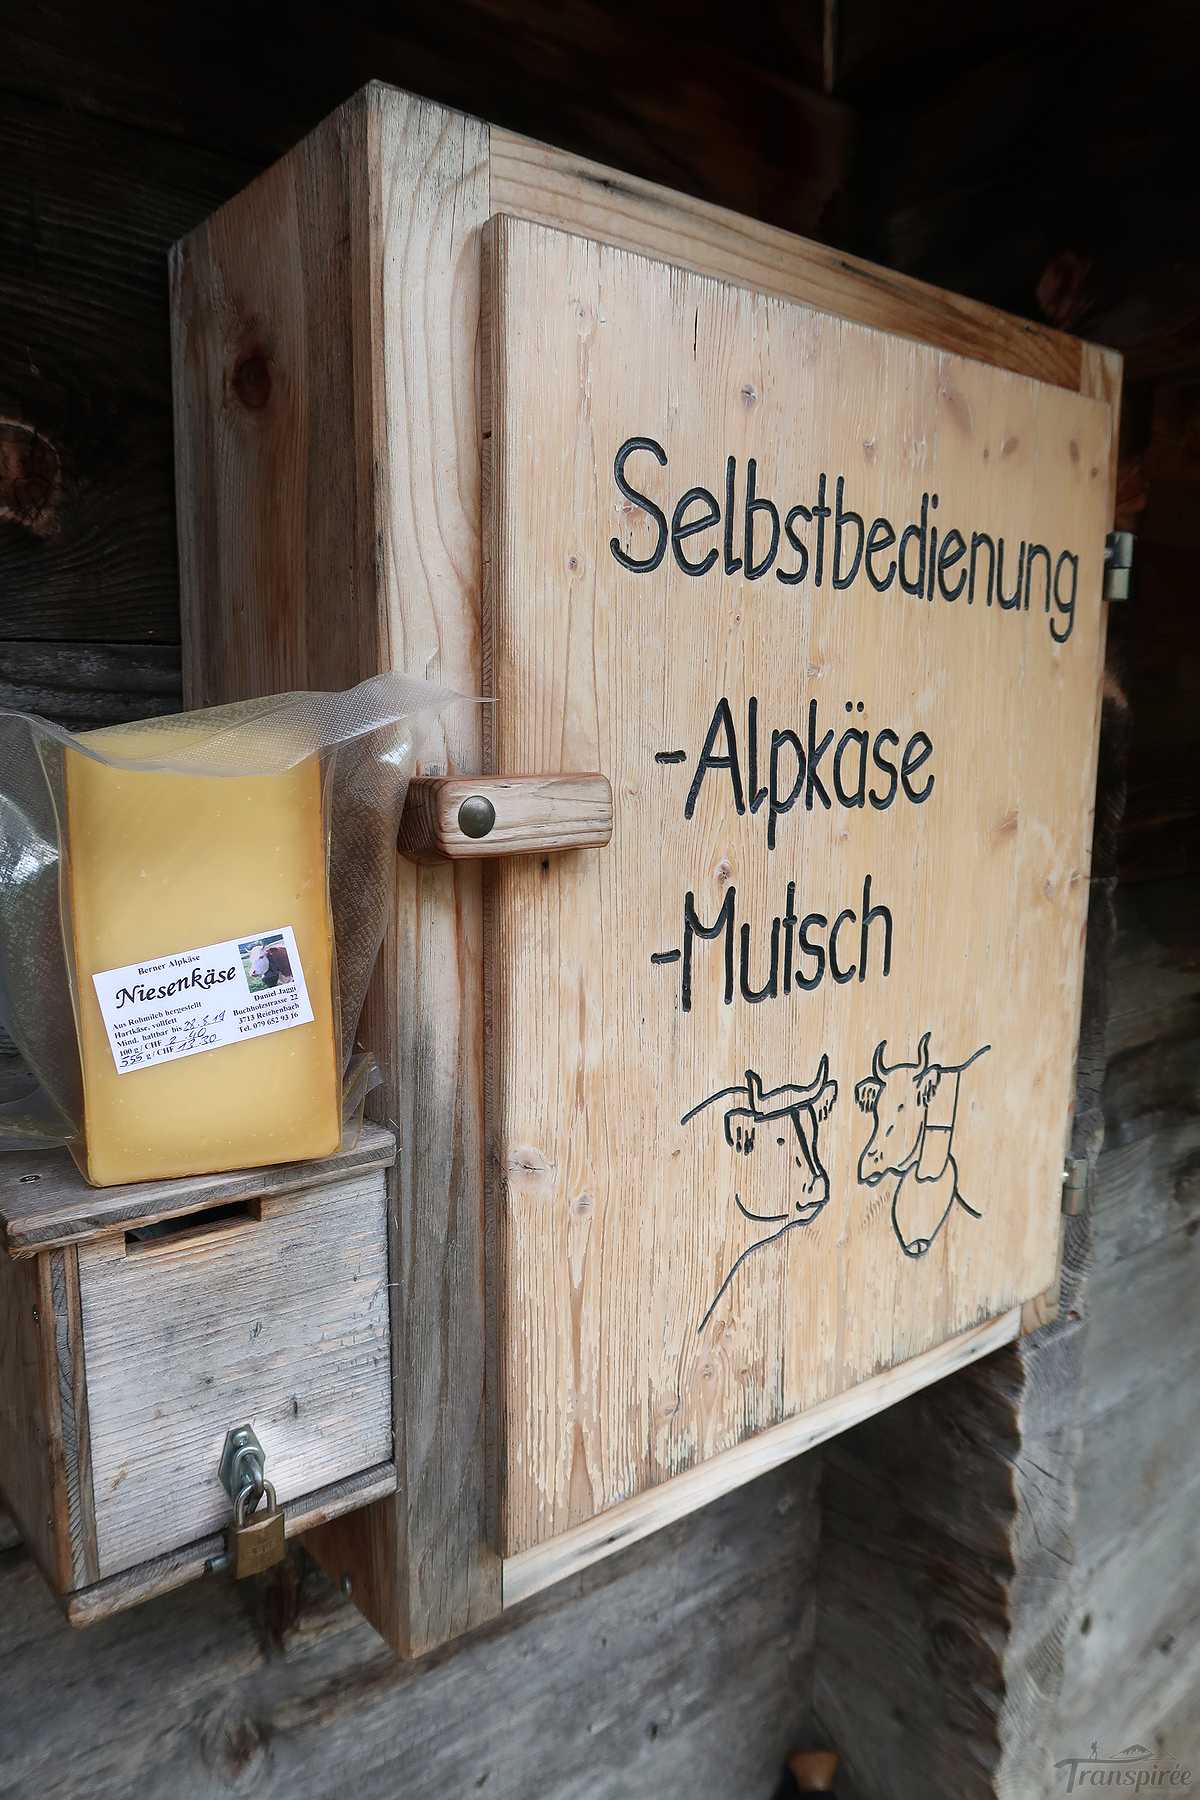 Selbstbedienung
-Alpkäse
-Mutsch
Berner Alpkäse
Niesenkäse
Aus Rohmilch hergestellt
Hartkäse, vollfett
Mind. haltbar bis 28.8.19
100 g / CHF 2.40
555 g / CHF 13.30
Daniel Jaggi
Buchholzstrasse 22
3713 Reichenbach
Tel. 079 652 93 16
Transpirée